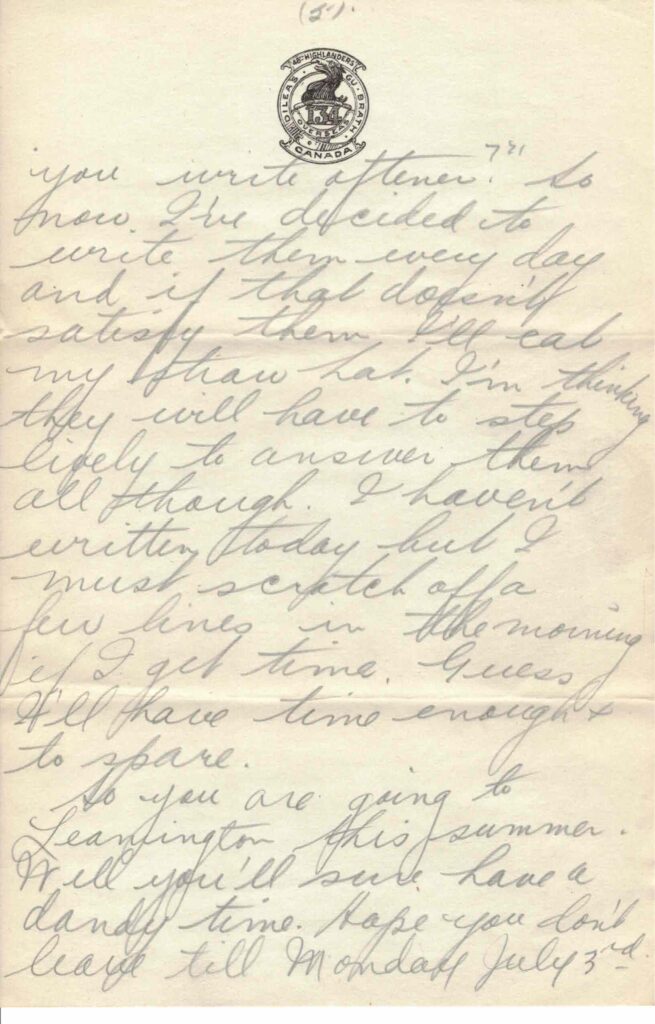 (5).
48TH HIGHLANDERS
DILEAS GU BRATH
134
OVERSEAS
CANADA
you write oftener?" So
now I've decided to
write them every day
and if that doesn't
satisfy them I'll eat
my straw hat. I'm thinking
they will have to step
lively to answer them
all though. I haven't
written today but I
must scratch off a
few lines in the morning
if I get time. Guess
I'll have time enough &
to spare.
So you are going to
Leamington this summer.
Well you'll sure have a
dandy time. Hope you don't
leave till Monday July 3rd.